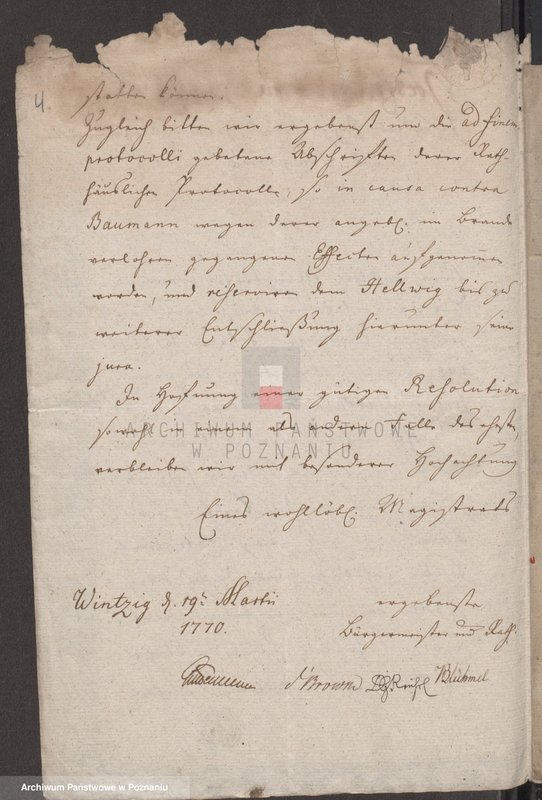 4.
statten können.
Zugleich bitten wir ergebenst um die ad finem
protocolli gebetene Abschrifften derer Rath-
häuslichen Protocolle, so in causa contra
Baumann wegen derer angebl. im Brande
verlohren gegangenen Effecten aufgenommen
worden, und reserviren dem Hellwig bis zu
weiterer Entschließung hierunter seine
jura.
In Hofnung einer gütigen Resolution
sowohl in einem als andern Falle des ehesten,
verbleiben wir mit besonderer Hochachtung
Eines wohllöbl. Magistrats
Wintzig d. 19t Martii
1770.
ergebenste
Bürgermeister und Rath.
d'Brown
Blühmel
ARCHIWUM PAŃSTWOWE
W POZNANIU
Archiwum Państwowe w Poznaniu